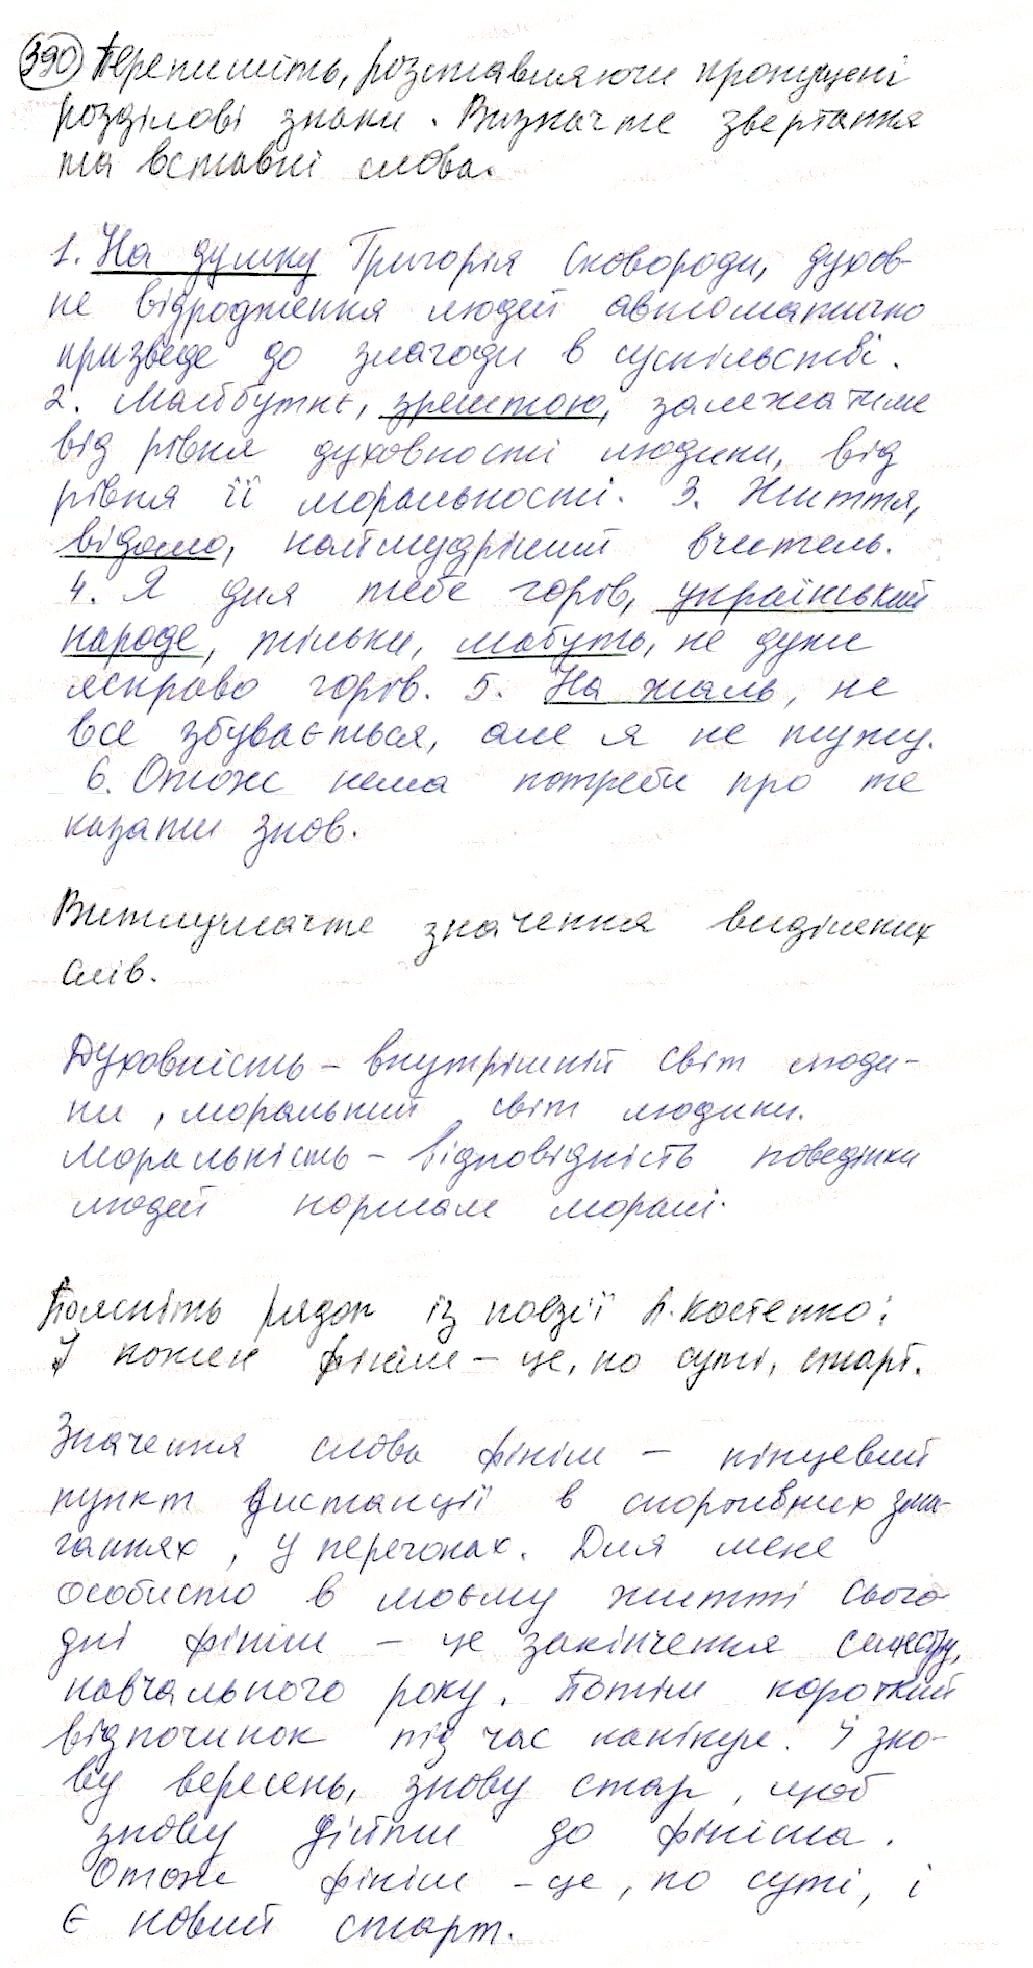 390 Перепишіть, розставляючи пропущені
розділові знаки. Визначте звертання
та вставні слова.
1. На думку Григорія Сковороди, духов-
не відродження людей автоматично
призведе до злагоди в суспільстві.
2. Майбутнє, зрештою, залежатиме
від рівня духовності людини, від
рівня її моральності. 3. Життя,
відомо, наймудріший вчитель.
4. Я для тебе горів, український
народе, тільки, мабуть, не дуже
яскраво горів. 5. На жаль, не
все збувається, але я не тужу.
6. Отож нема потреби про те
казати знов.
Витлумачте значення виділених
слів.
Духовність – внутрішній світ люди-
ни, моральний світ людини.
Моральність – відповідність поведінки
людей нормам моралі.
Поясніть рядок із поезії Л. Костенко:
І кожен фініш – це, по суті, старт.
Значення слова фініш – кінцевий
пункт дистанції в спортивних зма-
ганнях, у перегонах. Для мене
особисто в моєму житті сього-
дні фініш – це закінчення семестру,
навчального року. Потім короткий
відпочинок під час канікул. І зно-
ву вересень, знову стар, щоб
знову дійти до фініша.
Отож фініш – це, по суті, і
є новий старт.